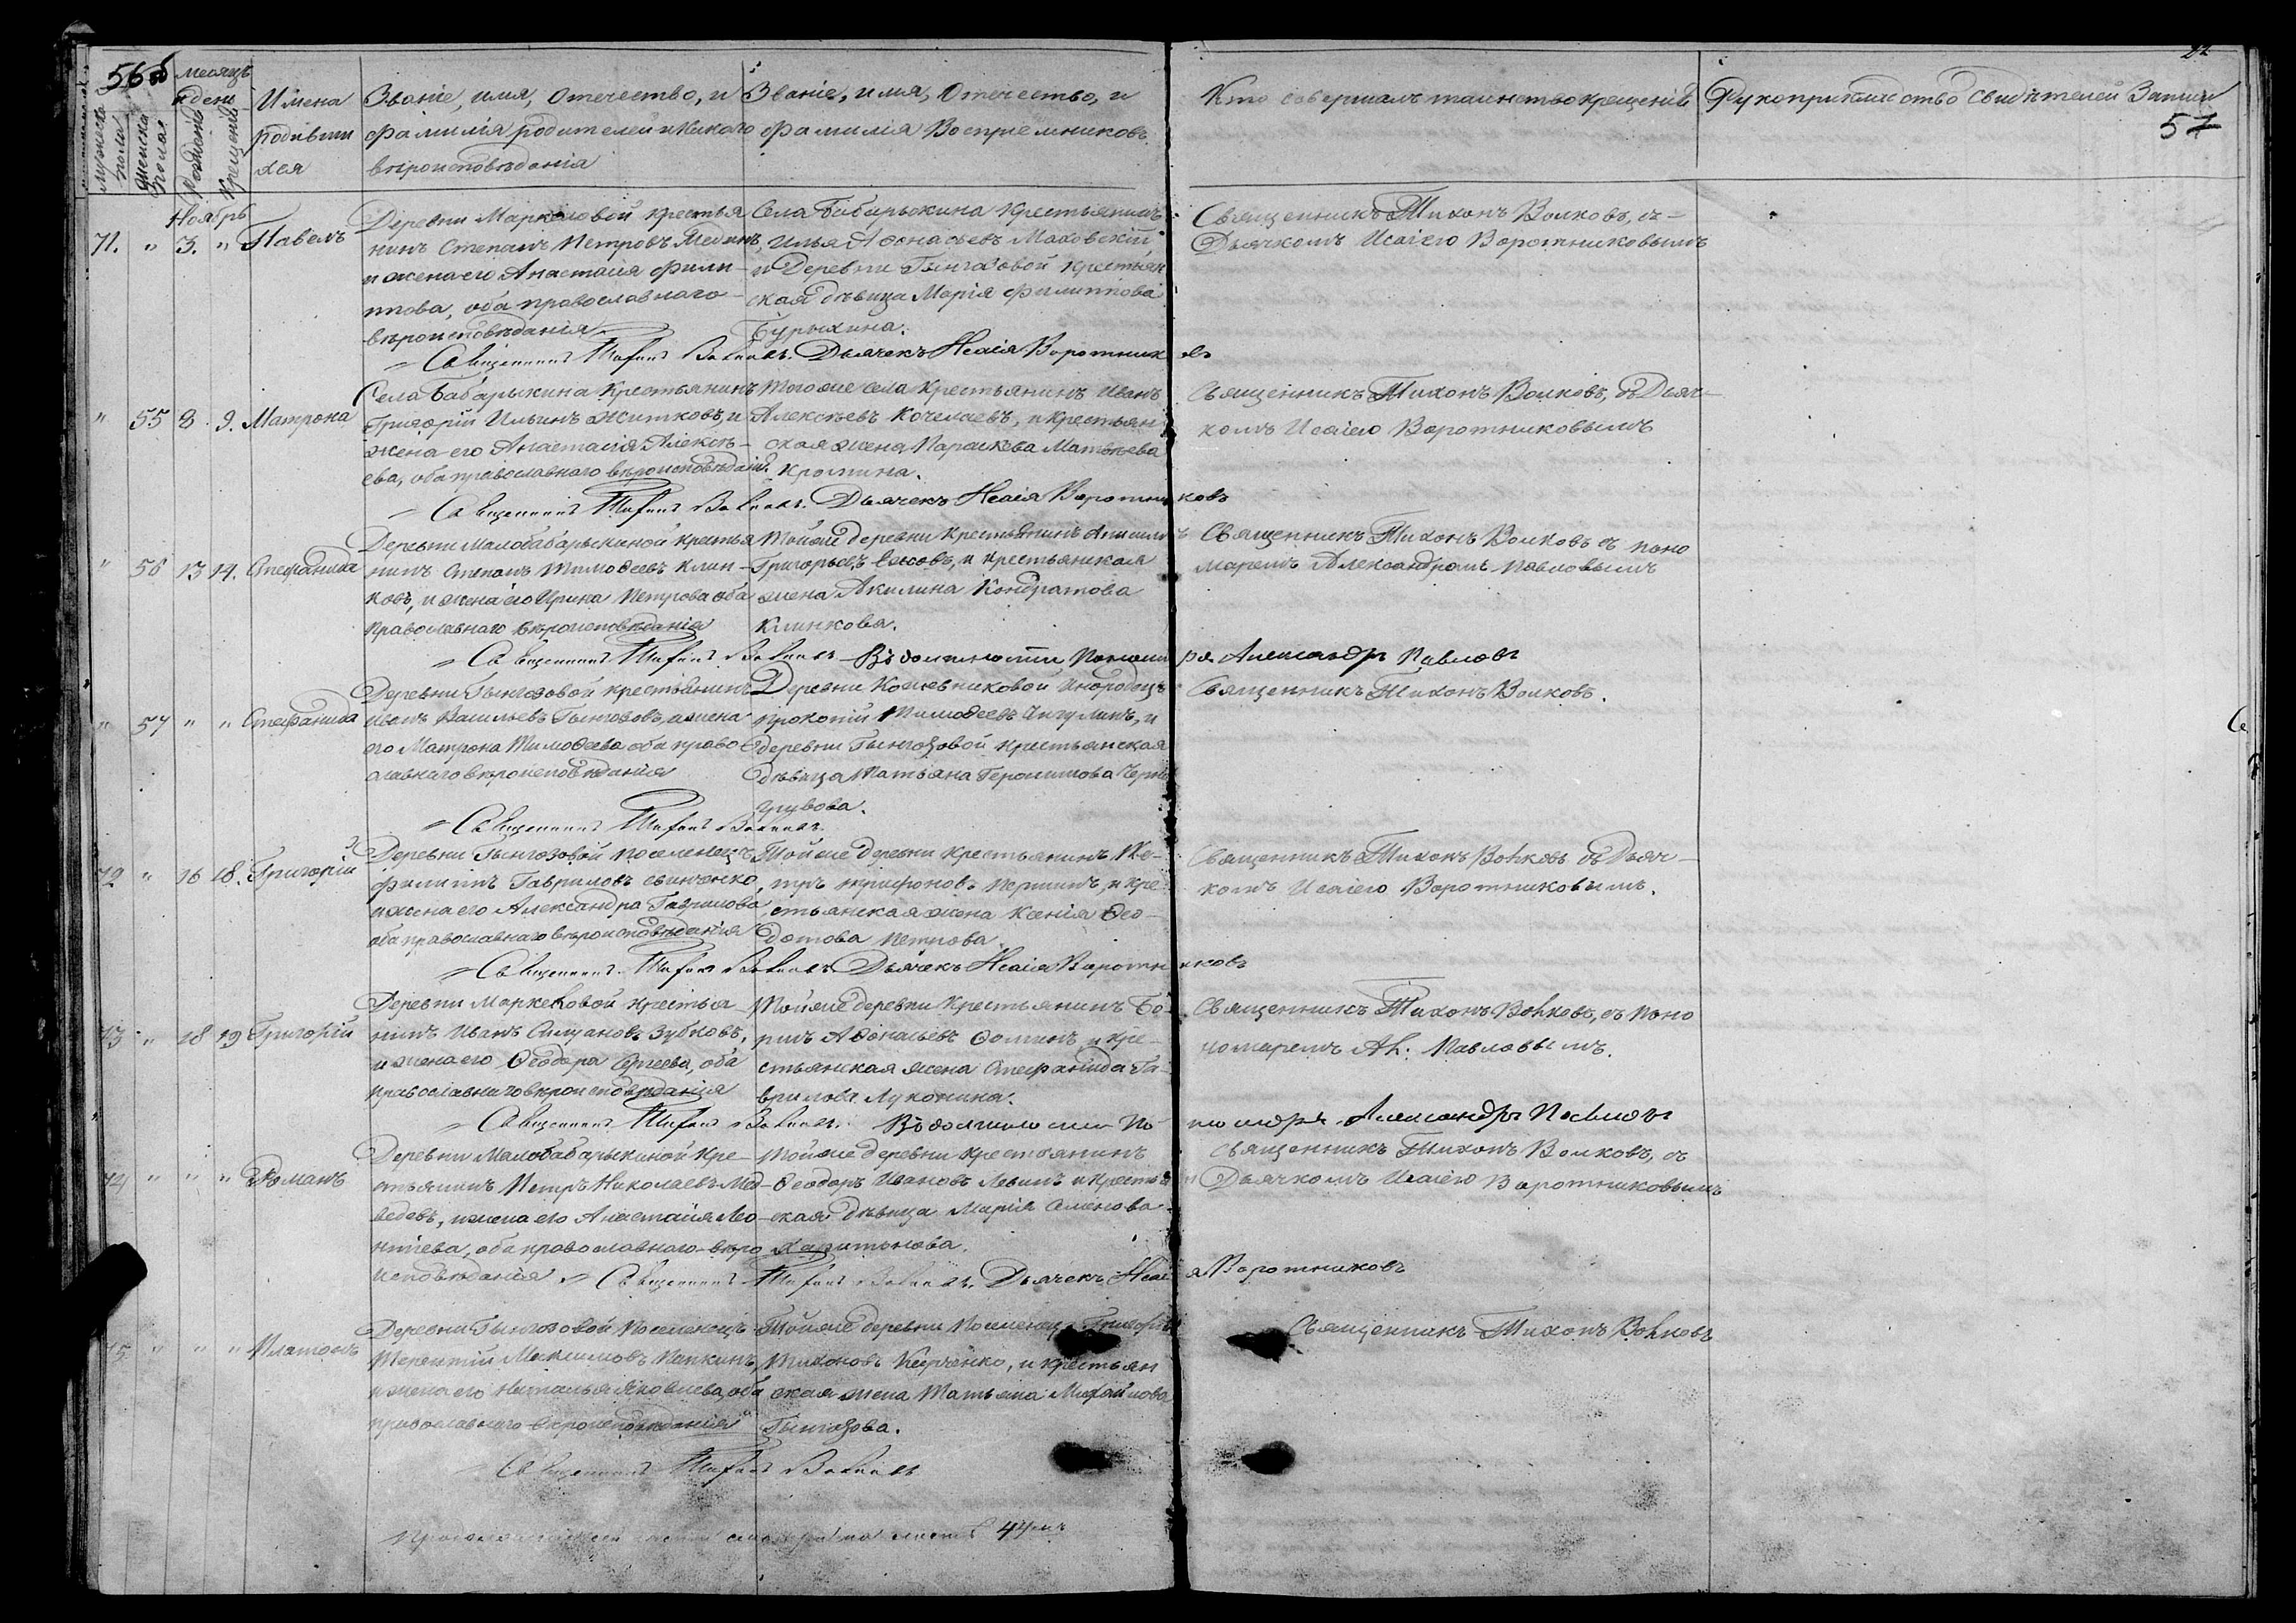 56об
22
57
Мужеска полу
Женска полу
Месяцъ и день
Рожденія
Крещенія
Имена родившихся
Званіе, имя, Отечество, и
фамилія родителей и какого
вѣроисповѣданія
Званіе, имя, Отечество, и
фамилія Воспріемниковъ
Кто совершалъ таинство крещенія
Рукоприкладство свидѣтелей Записи
Ноябрь
71. " 3. " Павелъ
Деревни Маркеловой крестья
нинъ Степанъ Петровъ
и жена его Анастасія Фили-
ппова, оба православнаго
вѣроисповѣданія
Села Бабарыкина крестьянинъ
Илья Афонасьевъ Маховскій,
и Деревни Гынгазовой крестьян
ская дѣвица Марія Филиппова
Бурыхина.
Священникъ Тихонъ Волковъ, съ-
Дьячкомъ Исаіею Воротниковымъ
Священникъ Тихонъ Волковъ. Дьячекъ Исаія Воротниковъ
" 55 8. 9. Матрона
Села Бабарыкина Крестьянинъ
Григорій Ильинъ Житковъ, и
жена его Анастасія Алексѣ-
ева, оба православнаго вѣроисповѣдан.
Того же села Крестьянинъ Иванъ
Алексѣевъ, и Крестьян
ская жена Параскева Матвѣева
Кромина.
Священникъ Тихонъ Волковъ, съ Дьяч-
комъ Исаіею Воротниковымъ
Священникъ Тихонъ Волковъ. Дьячекъ Исаія Воротниковъ
" 56 13 14. Стефанида
Деревни Малобабарыкиной Крестья
нинъ Степанъ Тимофеевъ Клин-
ковъ, и жена его Ирина Петрова оба
православнаго вѣроисповѣданія
Той же деревни Крестьянинъ
Григорьевъ, и крестьянская
жена Акилина Кондратова
Клинкова.
Священникъ Тихонъ Волковъ съ поно
маремъ Александромъ Павловымъ
Священникъ Тихонъ Волковъ Въ должности Пономаря Александръ Павловъ
" 57 " " Стефанида
Деревни Гынгазовой крестьянинъ
Иванъ Васильевъ Гынгазовъ, и жена
его Матрона Тимофеева оба право
славнаго вѣроисповѣданія
Деревни Кожевниковой Инородецъ
Прокопій Тимофеевъ, и
деревни Гынгазовой крестьянская
дѣвица Татьяна Героимова
Священникъ Тихонъ Волковъ.
Священникъ Тихонъ Волковъ.
72 " 16 18. Григорій
Деревни Гынгазовой Поселенецъ
Филиппъ Гавриловъ Савченко
и жена его Александра Гаврилова,
оба православнаго вѣроисповѣданія
Той же деревни крестьянинъ Пе-
тръ Трифоновъ, и кре-
стьянская жена Ксенія Ѳео-
дотова Петрова.
Священникъ Тихонъ Волковъ съ Дьяч-
комъ Исаіею Воротниковымъ.
Священникъ Тихонъ Волковъ Дьячекъ Исаія Воротниковъ
73 " 18 19 Григорій
Деревни Маркеловой крестья-
нинъ Иванъ Силуановъ Зубковъ,
и жена его Ѳеодора Сергеева, оба
православнаго вѣроисповѣданія
Той же деревни Крестьянинъ Бо-
рисъ Афонасьевъ Ѳоминъ, и кре-
стьянская жена Стефанида Га-
врилова Луконина.
Священникъ Тихонъ Волковъ, съ поно
номаремъ Ал: Павловымъ.
Священникъ Тихонъ Волковъ. Въ должности Пономаря Александръ Павловъ
74 " " " Романъ
Деревни Малобабарыкиной Кре-
стьянинъ Петръ Николаевъ Мед-
ведевъ, и жена его Анастасія Лео-
нтіева, оба православнаго вѣро
исповѣданія.
Той же деревни Крестьянинъ
Ѳеодоръ Ивановъ Левинъ и Крестья
ская дѣвица Марія Семенова
Харитонова.
Священникъ Тихонъ Волковъ, съ
Дьячкомъ Исаіею Воротниковымъ
Священникъ Тихонъ Волковъ. Дьячекъ Исаія Воротниковъ
75 " " " Платонъ
Деревни Гынгазовой Поселенецъ
Терентій Максимовъ Папкинъ,
и жена его Наталья Яковлева, оба
православнаго вѣроисповѣданія
Той же деревни Поселенецъ Григорій
Тихоновъ, и крестьян
ская жена Татьяна Михайлова
Гынгазова.
Священникъ Тихонъ Волковъ
Священникъ Тихонъ Волковъ
смотри на листѣ 44мъ